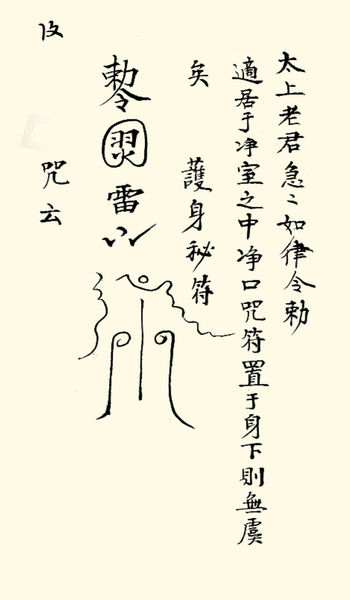 太上老君急〻如律令勅
適居于净室之中净口咒符置于身下則無虞
矣 護身秘符
勅令
雷
咒云